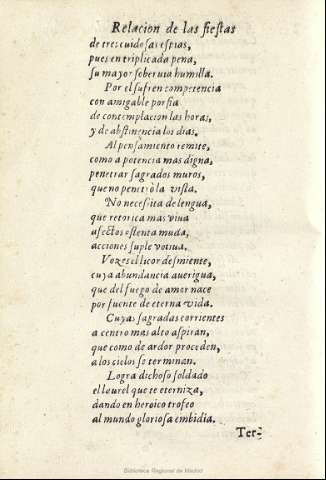 Relacion de las fiestas
de tres cuidosas espias,
pues en triplicada pena,
su mayor soberuia humilla.
Por el sufren competencia
con amigable porfia
de contemplacion las horas,
y de abstinencia los dias.
Al pensamiento remite,
como a potencia mas digna,
penetrar sagrados muros,
que no penetrò la vista.
No necesita de lengua,
que retorica mas viua
afectos ostenta muda,
acciones suple votiua.
Vozes el licor desmiente,
cuya abundancia auerigua,
que del fuego de amor nace
por fuente de eterna vida.
Cuyas sagradas corrientes
a centro mas alto aspiran,
que como de ardor proceden,
a los cielos se terminan.
Logra dichoso soldado
el laurel que te eterniza,
dando en heroico trofeo
al mundo gloriosa embidia.
Ter-
Biblioteca Regional de Madrid